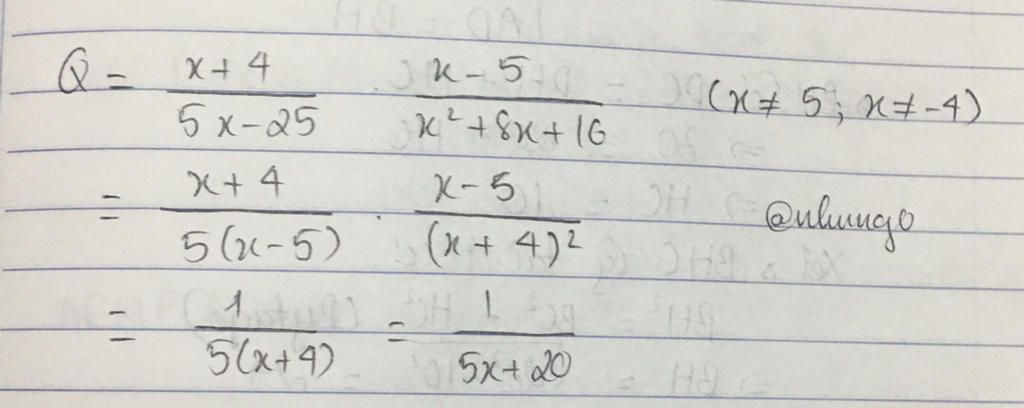 Q = \frac{x+4}{5x-25} \frac{x-5}{x²+8x+16} (x ≠ 5; x ≠ -4)
= \frac{x+4}{5(x-5)} . \frac{x-5}{(x+4)²} @nhungo
= \frac{1}{5(x+4)} = \frac{1}{5x+20}